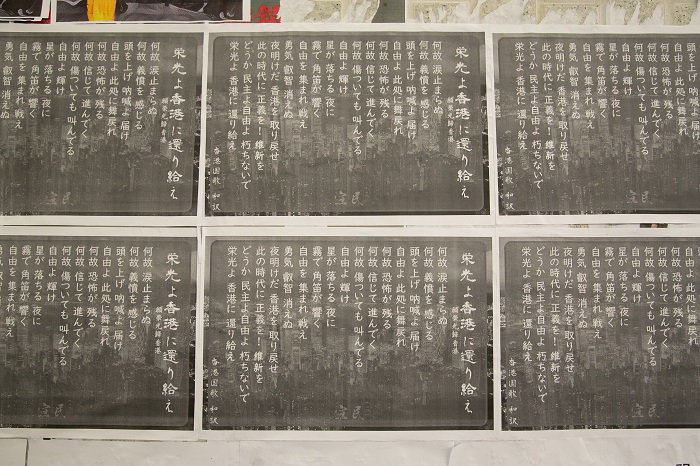 栄光よ香港に還り給え
願榮光歸香港
何故 涙止まらぬ
何故 義憤を感じる
頭を上げ 吶喊よ届け
自由よ 此処に舞戻れ
何故 恐怖が残る
何故 信じて進んでく
何故 傷ついても 叫んでる
自由よ 輝け
星が落ちる 夜に
霧で 角笛が響く
自由を集まれ 戦え
勇気 叡智 消えぬ
栄光よ香港に還り給え
願榮光歸香港
何故 涙止まらぬ
何故 義憤を感じる
頭を上げ 吶喊よ届け
自由よ 此処に舞戻れ
何故 恐怖が残る
何故 信じて進んでく
何故 傷ついても 叫んでる
自由よ 輝け
星が落ちる 夜に
霧で 角笛が響く
自由を集まれ 戦え
勇気 叡智 消えぬ
夜明けだ 香港を取り戻せ
此の時代に 正義を！ 維新を
どうか 民主よ自由よ 朽ちないて
栄光よ 香港に還り給え
香港国歌 和訳
何故 恐怖が残る
何故 信じて進んでく
何故 傷ついても 叫んでる
自由よ 輝け
星が落ちる 夜に
霧で 角笛が響く
自由を集まれ 戦え
勇気 叡智 消えぬ
夜明けだ 香港を取り戻せ
此の時代に 正義を！ 維新を
どうか 民主よ自由よ 朽ちないて
栄光よ 香港に還り給え
香港国歌 和訳
栄光よ香港に還り給え
願榮光歸香港
何故 涙止まらぬ
何故 義憤を感じる
頭を上げ 吶喊よ届け
自由よ 此処に舞戻れ
何故 恐怖が残る
何故 信じて進んでく
何故 傷ついても 叫んでる
自由よ 輝け
星が落ちる 夜に
霧で 角笛が響く
自由を集まれ 戦え
栄光よ香港に還り給え
願榮光歸香港
何故 涙止まらぬ
何故 義憤を感じる
頭を上げ 吶喊よ届け
自由よ 此処に舞戻れ
何故 恐怖が残る
何故 信じて進んでく
何故 傷ついても 叫んでる
自由よ 輝け
星が落ちる 夜に
霧で 角笛が響く
自由を集まれ 戦え
勇気 叡智 消えぬ
夜明けだ 香港を取り戻せ
此の時代に 正義を！ 維新を
どうか 民主よ自由よ 朽ちないて
栄光よ 香港に還り給え
香港国歌 和訳
何故 恐怖が残る
何故 信じて進んでく
何故 傷ついても 叫んでる
自由よ 輝け
星が落ちる 夜に
霧で 角笛が響く
自由を集まれ 戦え
勇気 叡智 消えぬ
夜明けだ 香港を取り戻せ
此の時代に 正義を！ 維新を
どうか 民主よ自由よ 朽ちないて
栄光よ 香港に還り給え
香港国歌 和訳